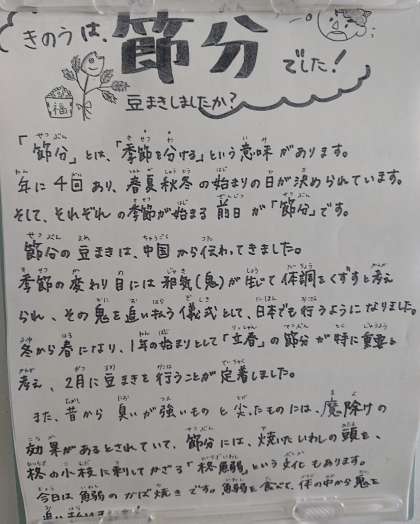 きのうは、節分でした！
豆まきしましたか？
福
「節分」とは、「季節を分ける」という意味があります。
年に4回あり、春夏秋冬の始まりの日が決められています。
そして、それぞれの季節が始まる前日が「節分」です。
節分の豆まきは、中国から伝わってきました。
季節の変わり目には邪気(鬼)が生じて体調をくずすと考え
られ、その鬼を追い払う儀式として、日本でも行うようになりました。
冬から春になり、1年の始まりとして「立春」の節分が特に重要と
考え、2月に豆まきを行うことが定着しました。
また、昔から臭いが強いものと尖ったものには、魔除けの
効果があるとされていて、節分には、焼いたいわしの頭を、
柊の小枝に刺してかざる「柊鰯」という文化もあります。
今日は鰯のかば焼きです。鰯を食べて、体の中から鬼を
追い